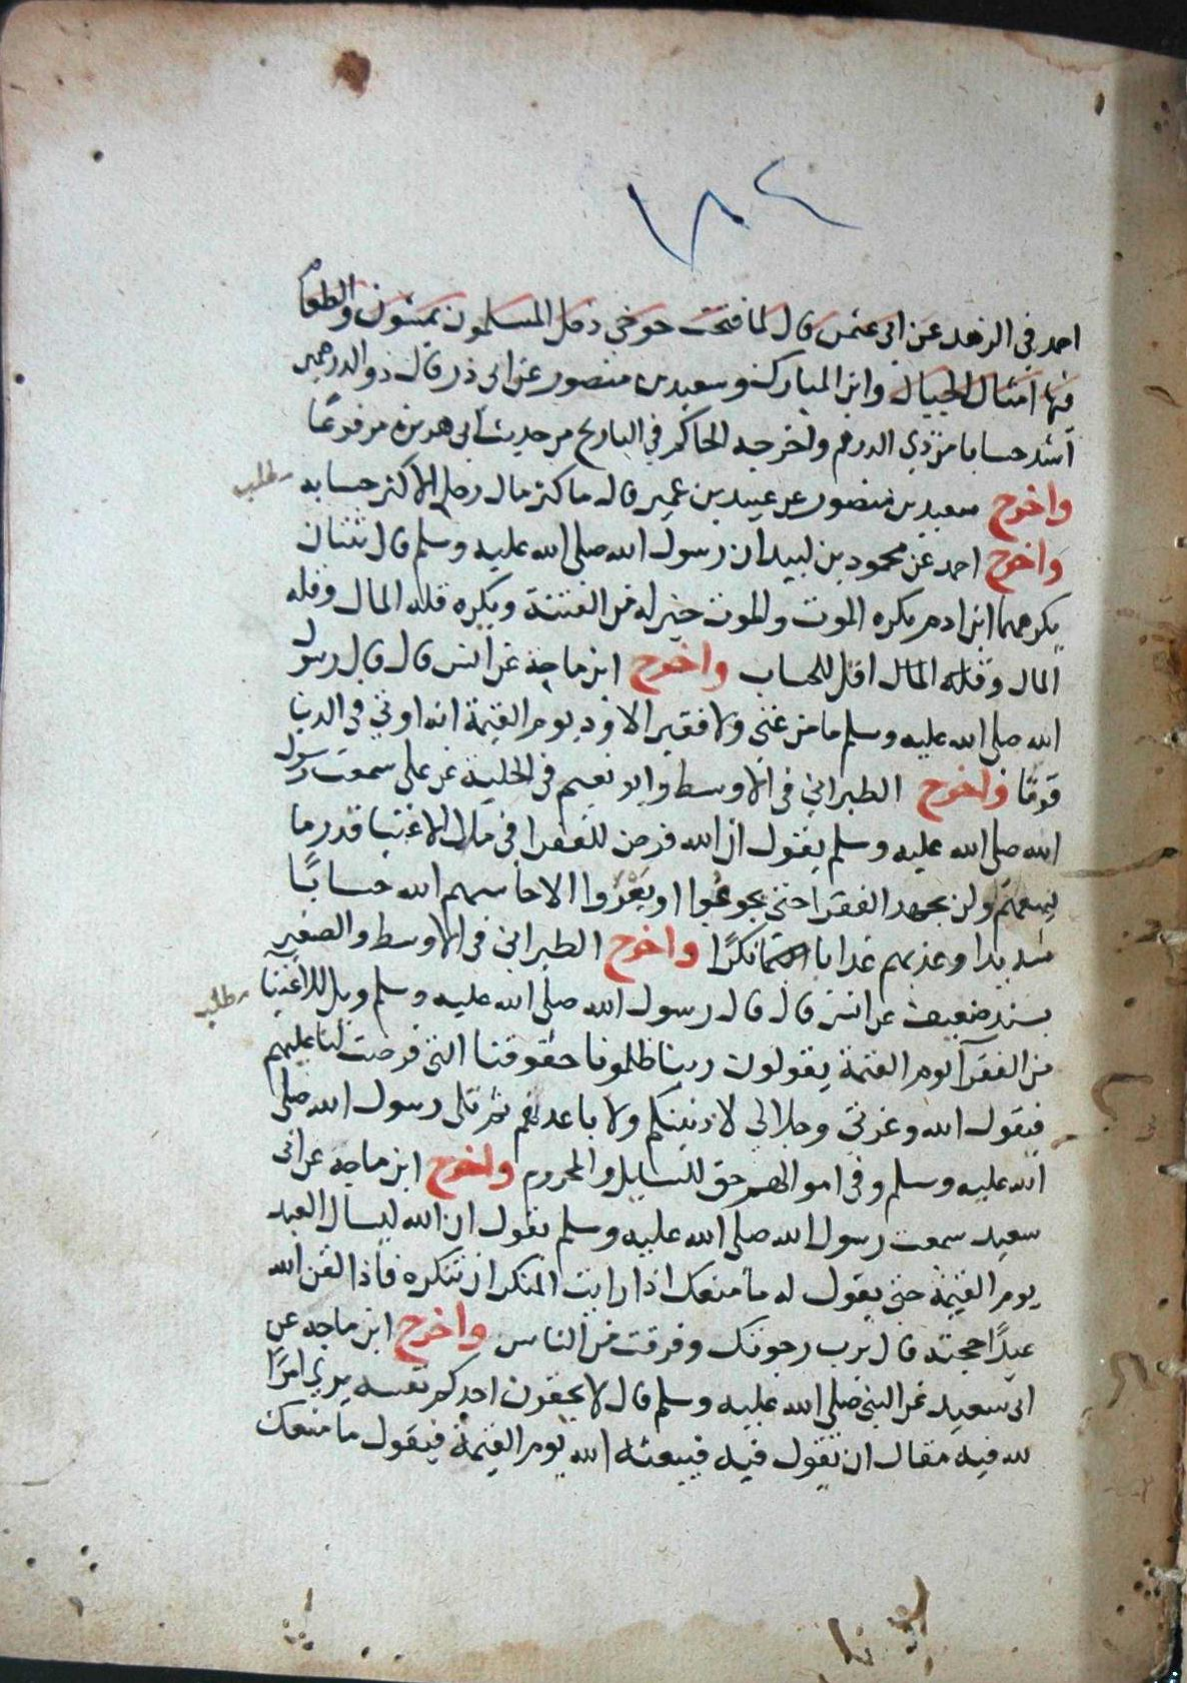 ١٨٤
احمد في الزهد عن ابي عثمن قال لما فتحت جوخى دخل المسلمون يمشون والطعام
فيها امثال الجبال وابن المبارك وسعيد بن منصور عن ابي ذر قال ذو الدرهمين
اشد حسابا من ذي الدرهم واخرجه الحاكم في التاريخ من حديث ابي هريرة مرفوعا
واخرج سعيد بن منصور عن عبيد بن عمير قال ما كثر مال رجل الا كثر حسابه
مطلب
واخرج احمد عن محمود بن لبيد ان رسول الله صلى الله عليه وسلم قال ثنتان
يكرههما ابن ادم يكره الموت والموت خير له من الفتنة ويكره قلة المال وقلة
المال وقلة المال اقل للحساب واخرج ابن ماجة عن انس قال قال رسول
الله صلى الله عليه وسلم ما من غني ولا فقير الا ود يوم القيمة انه اوتي في الدنيا
قوتا واخرج الطبراني في الاوسط وابو نعيم في الحلية عن علي سمعت رسول
الله صلى الله عليه وسلم يقول ان الله فرض للفقرا في مال الاغنيا قدر ما
يسعهم ولن يجهد الفقرا حتى يجوعوا او يعروا الا حاسبهم الله حسابًا
شديدا وعذبهم عذابا نكرًا واخرج الطبراني في الاوسط والصغير
بسند ضعيف عن انس قال قال رسول الله صلى الله عليه وسلم ويل للاغنيا
مطلب
من الفقرآ يوم القيمة يقولون ربنا ظلمونا حقوقنا التي فرضت لنا عليهم
فيقول الله وعزتي وجلالي لادنينكم ولاباعدنهم ثم تلى رسول الله صلى
الله عليه وسلم وفي اموالهم حق للسايل والمحروم واخرج ابن ماجه عن ابي
سعيد سمعت رسول الله صلى الله عليه وسلم يقول ان الله ليسال العبد
يوم القيمة حتى يقول له ما منعك اذا رايت المنكر ان تنكره فاذا لقن الله
عبدًا حجته قال يرب رجوتك وفرقت من الناس واخرج ابن ماجه عن
ابي سعيد عن النبي صلى الله عليه وسلم قال لا يحقرن احدكم نفسه يرى امرًا
لله فيه مقال ان يقول فيه فيبعثه الله يوم القيمة فيقول ما منعك